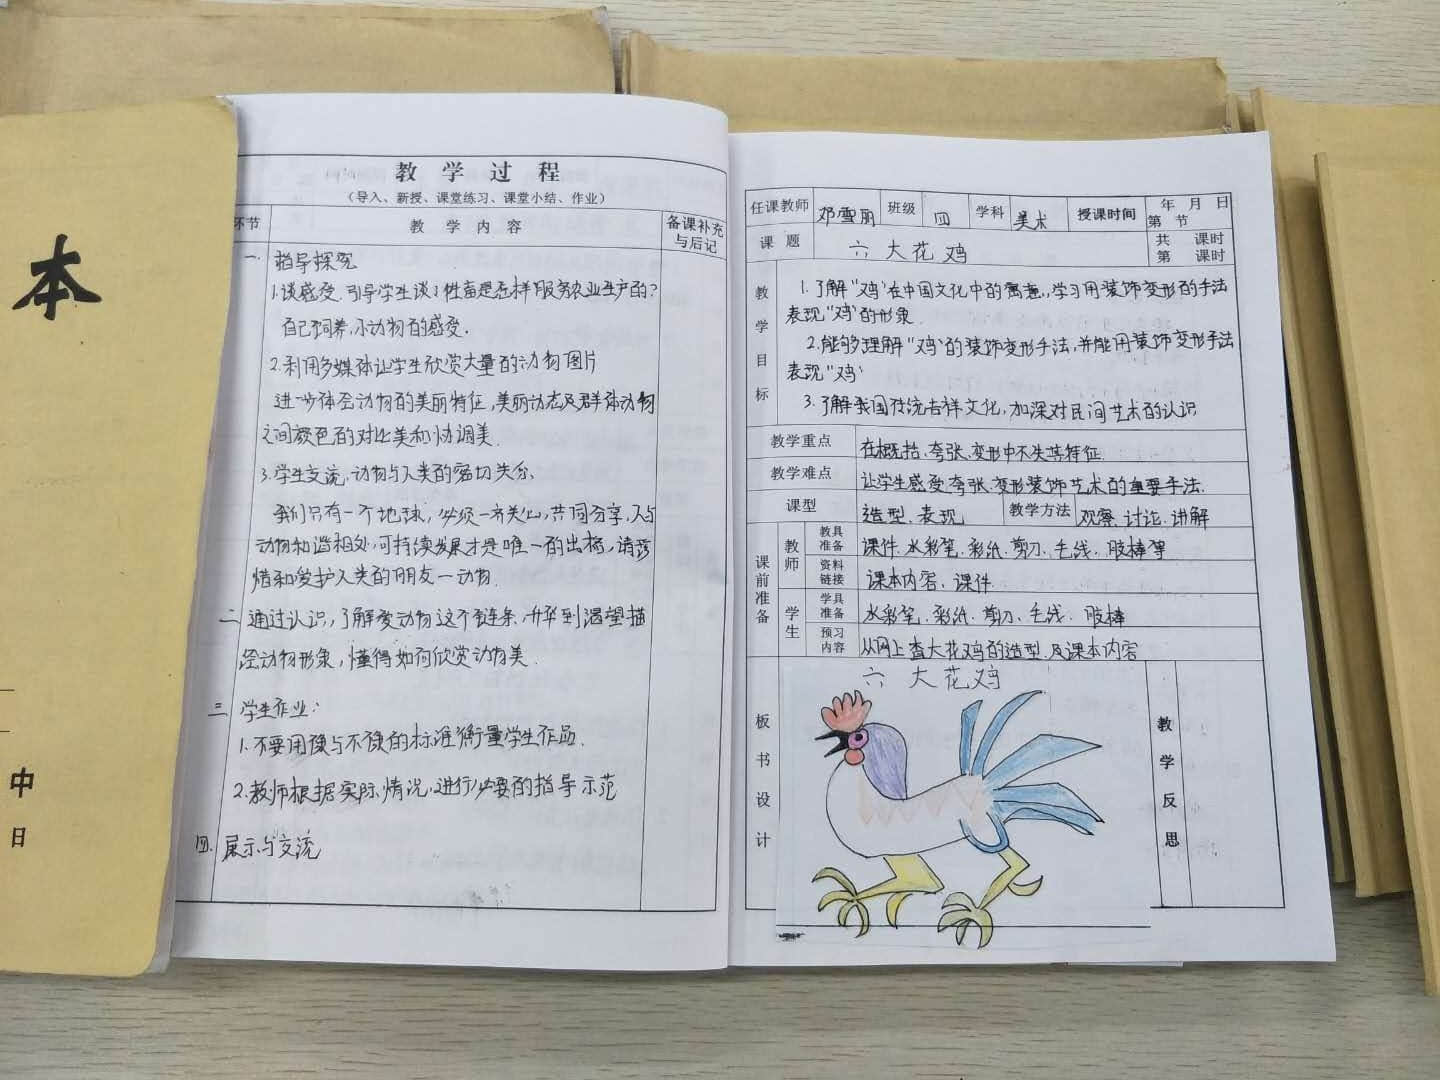 本
中
日
教学过程
（导入、新授、课堂练习、课堂小结、作业）
环节
教学内容
备课补充
与后记
一.指导探究
1.谈感受.引导学生谈谈牲畜是怎样服务农业生产的?
自己饲养小动物的感受.
2.利用多媒体让学生欣赏大量的动物图片
进一步体会动物的美丽特征,美丽动态及群体动物
之间颜色的对比美和协调美.
3.学生交流,动物与人类的密切关系.
我们只有一个地球,必须一齐关心,共同分享,人与
动物和谐相处,可持续发展才是唯一的出路,请珍
惜和爱护人类的朋友一动物.
二.通过认识,了解爱动物这个链条,升华到渴望描
绘动物形象,懂得如何欣赏动物美.
三 学生作业:
1.不要用像与不像的标准衡量学生作品.
2.教师根据实际情况,进行必要的指导示范
四.展示与交流
任课教师 邓雪丽 班级 四 学科 美术 授课时间 年 月 日
第 节
课题 六 大花鸡
共 课时
第 课时
教学目标
1.了解"鸡"在中国文化中的寓意,学习用装饰变形的手法
表现"鸡"的形象.
2.能够理解"鸡"的装饰变形手法,并能用装饰变形手法
表现"鸡"
3.了解我国传统吉祥文化,加深对民间艺术的认识
教学重点 在概括、夸张、变形中不失其特征.
教学难点 让学生感受夸张、变形装饰艺术的重要手法.
课型 造型、表现 教学方法 观察、讨论、讲解
课前准备
教师
教具
准备 课件、水彩笔、彩纸、剪刀、毛线、胶棒等
资料
链接 课本内容、课件
学生
学具
准备 水彩笔、彩纸、剪刀、毛线、胶棒
预习
内容 从网上查大花鸡的造型及课本内容
板书设计
六 大花鸡
教学反思